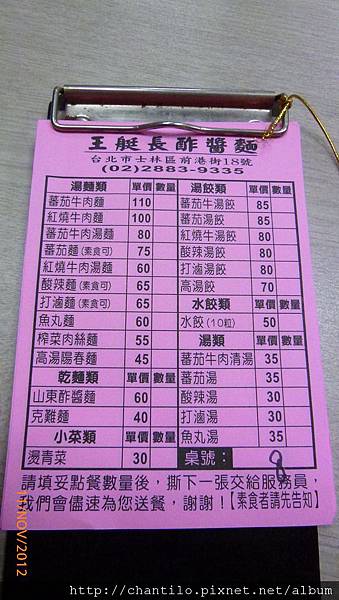 王艇長酢醬麵
台北市士林區前港街18號
(02)2883-9335
湯麵類 單價 數量
蕃茄牛肉麵 110
紅燒牛肉麵 100
蕃茄牛肉湯麵 80
蕃茄麵(素食可) 75
紅燒牛肉湯麵 60
酸辣麵(素食可) 65
打滷麵(素食可) 65
魚丸麵 60
榨菜肉絲麵 55
高湯陽春麵 45
乾麵類 單價 數量
山東酢醬麵 60
克難麵 40
小菜類 單價 數量
燙青菜 30
湯餃類 單價 數量
蕃茄牛湯餃 85
蕃茄湯餃 85
紅燒牛湯餃 80
酸辣湯餃 80
打滷湯餃 80
高湯餃 70
水餃類 單價 數量
水餃(10粒) 50
湯類 單價 數量
蕃茄牛肉清湯 35
蕃茄湯 35
酸辣湯 30
打滷湯 30
魚丸湯 35
桌號： 8
請填妥點餐數量後，撕下一張交給服務員，
我們會儘速為您送餐，謝謝！【素食者請先告知】
11/NOV/2012
http://chantilo.pixnet.net/album